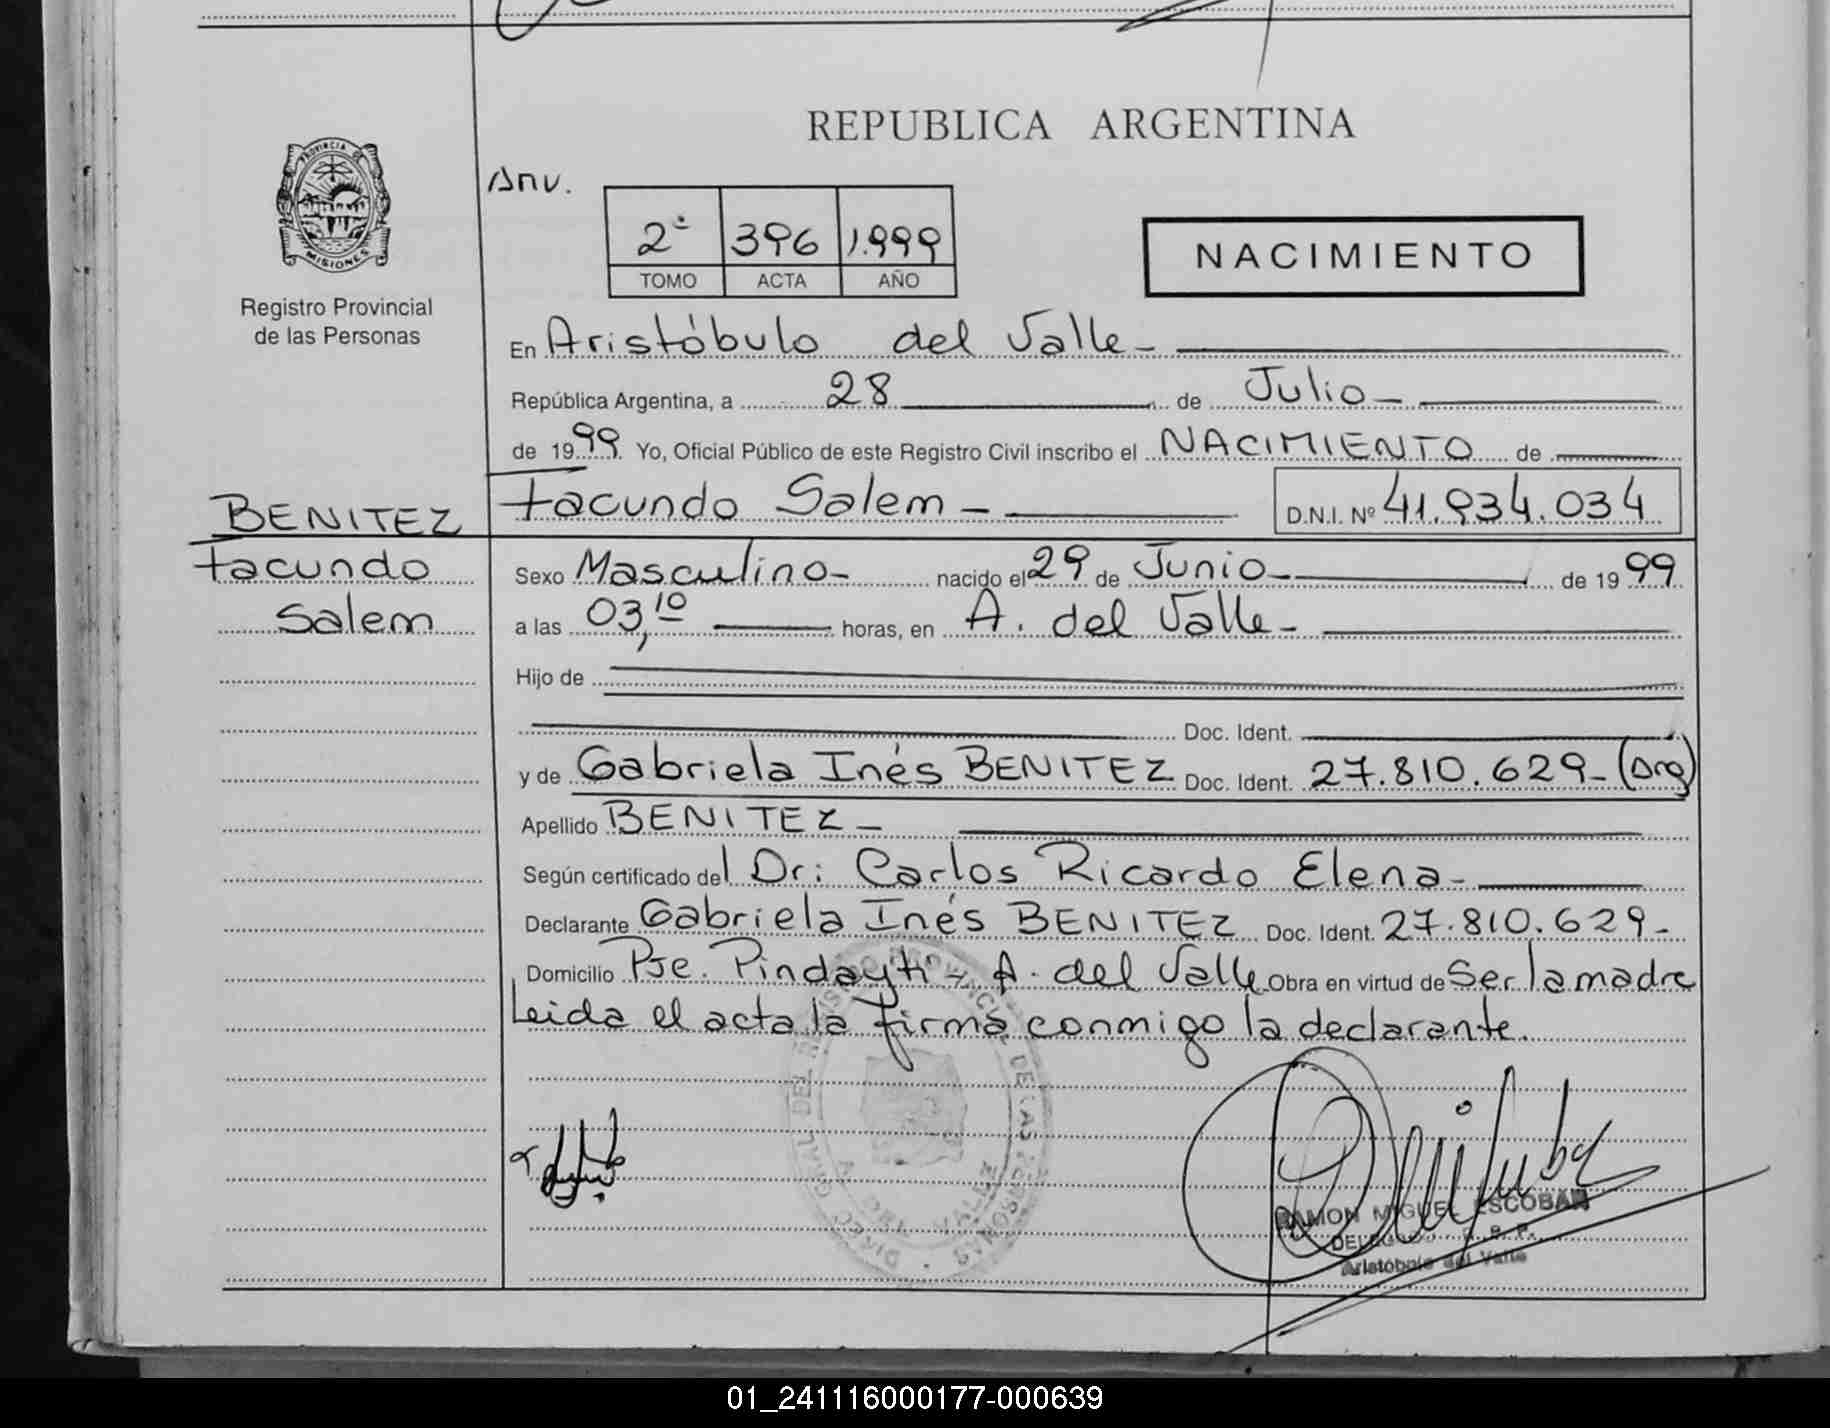 REPUBLICA ARGENTINA
PROVINCIA DE
MISIONES
Registro Provincial
de las Personas
Anv.
2º 396 1.999
TOMO ACTA AÑO
NACIMIENTO
En Aristóbulo del Valle-
República Argentina, a 28 de Julio-
de 1999. Yo, Oficial Público de este Registro Civil inscribo el NACIMIENTO de
BENITEZ
Facundo
Salem
Facundo Salem - D.N.I. Nº 41.934.034
Sexo Masculino- nacido el 29 de Junio- de 1999
a las 03,10 horas, en A. del Valle-
Hijo de
Doc. Ident.
y de Gabriela Inés BENITEZ Doc. Ident. 27.810.629-(Arg)
Apellido BENITEZ-
Según certificado del Dr: Carlos Ricardo Elena-
Declarante Gabriela Inés BENITEZ Doc. Ident. 27.810.629-
Domicilio Pje. Pindayti - A. del Valle Obra en virtud de Ser la madre
Leida el acta la firma conmigo la declarante.
DIREC. GRAL. DEL REGISTRO PROVINCIAL DE LAS PERSONAS
VALLE
RAMON MIGUEL ESCOBAR
DELEGADO R. P. P.
Aristóbulo del Valle
01_241116000177-000639